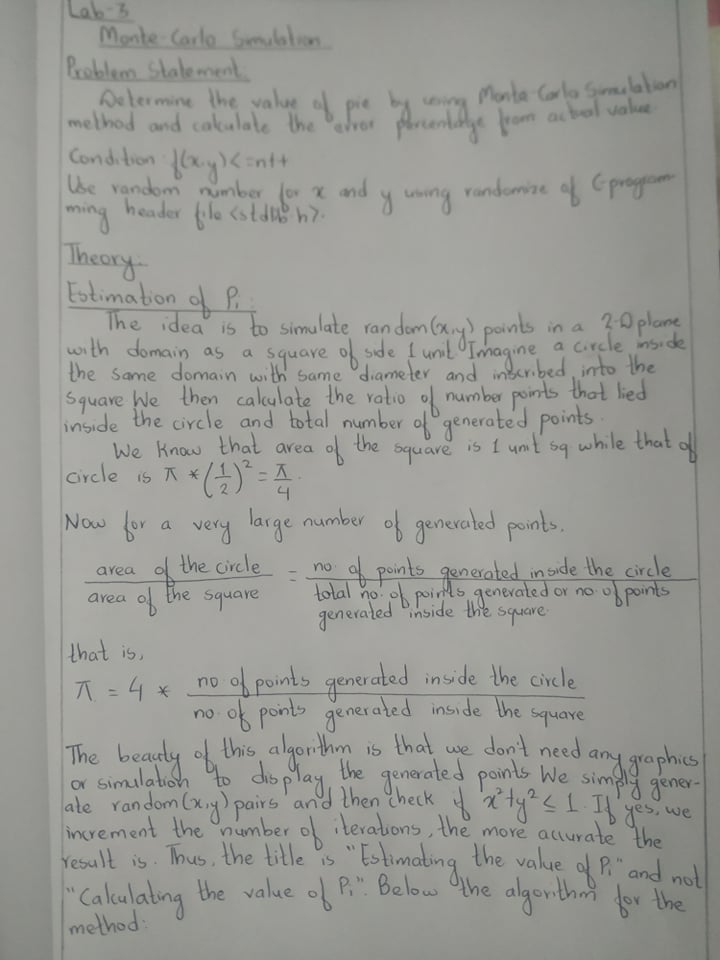 Lab-3
Monte-Carlo Simulation
Problem Statement:
Determine the value of pie by using Monte Carlo Simulation
method and calculate the error percentage from actual value.
Condition f(x,y)<=n++
Use random number for x and y using randomize of C-program-
ming header file <stdlib.h>.
Theory:
Estimation of Pi:
The idea is to simulate random(x,y) points in a 2-D plane
with domain as a square of side 1 unit. Imagine a circle inside
the same domain with same diameter and inscribed into the
square We then calculate the ratio of number points that lied
inside the circle and total number of generated points.
We know that area of the square is 1 unit sq while that of
circle is π * (1/2)² = π/4.
Now for a very large number of generated points.
area of the circle / area of the square = no. of points generated inside the circle / total no. of points generated or no. of points generated inside the square
that is,
π = 4 * no. of points generated inside the circle / no. of points generated inside the square
The beauty of this algorithm is that we don't need any graphics
or simulation to display the generated points We simply gener-
ate random(x,y) pairs and then check if x²+y² ≤ 1. If yes, we
increment the number of iterations, the more accurate the
result is. Thus, the title is "Estimating the value of Pi" and not
"Calculating the value of Pi". Below the algorithm for the
method: